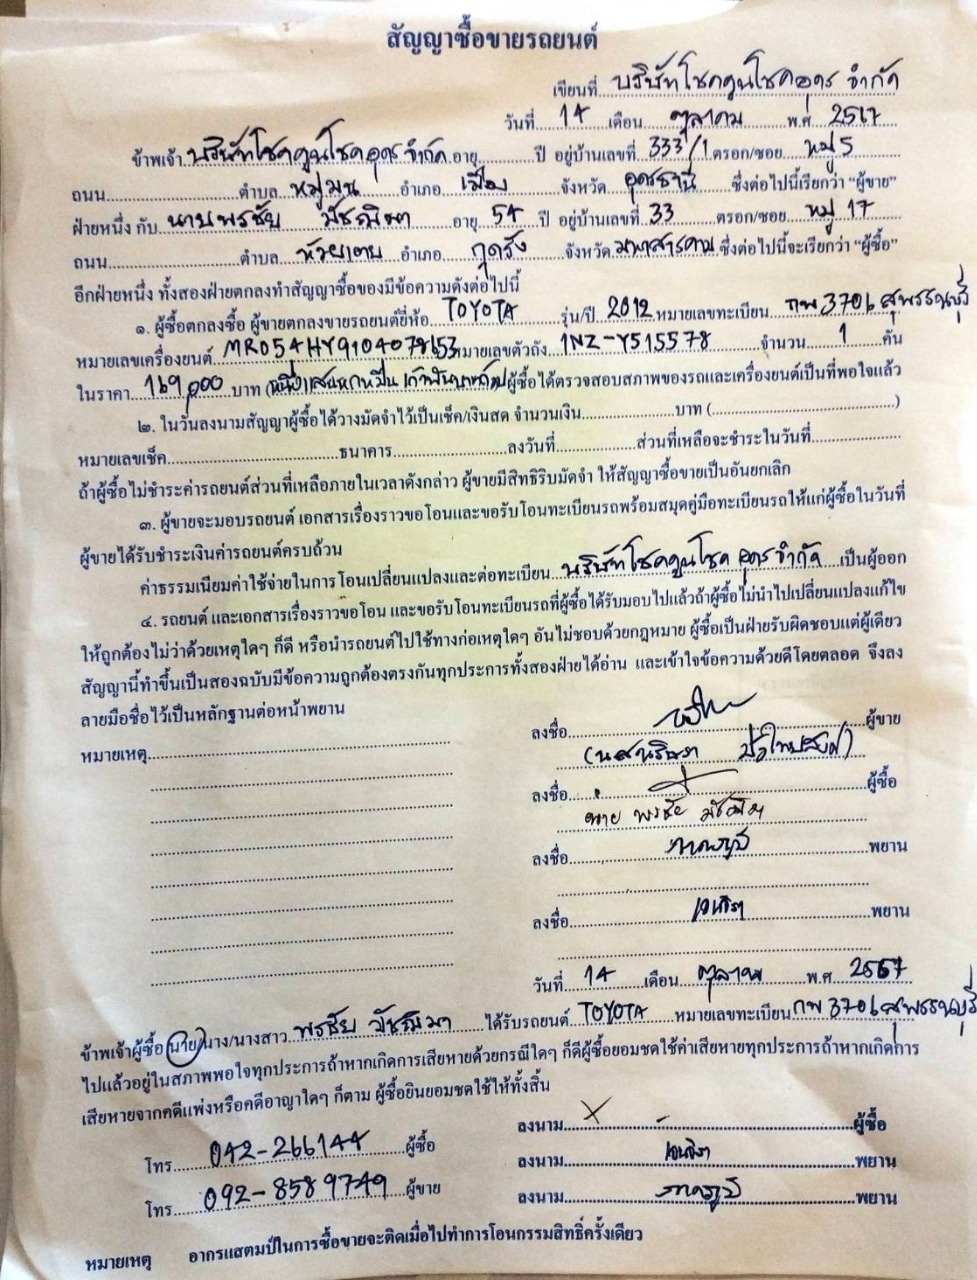 สัญญาซื้อขายรถยนต์
เขียนที่ บริษัทโชคคูนโชคอุดร จำกัด
วันที่ 14 เดือน ตุลาคม พ.ศ 2567
ข้าพเจ้า บริษัทโชคคูนโชคอุดร จำกัด อายุ ปี อยู่บ้านเลขที่ 333/1 ตรอก/ซอย หมู่ 5
ถนน ตำบล หมูม่น อำเภอ เมือง จังหวัด อุดรธานี ซึ่งต่อไปนี้เรียกว่า "ผู้ขาย"
ฝ่ายหนึ่ง กับ นายพรชัย มัชฌิมา อายุ 54 ปี อยู่บ้านเลขที่ 33 ตรอก/ซอย หมู่ 17
ถนน ตำบล ห้วยเตย อำเภอ กุดรัง จังหวัด มหาสารคาม ซึ่งต่อไปนี้จะเรียกว่า "ผู้ซื้อ"
อีกฝ่ายหนึ่ง ทั้งสองฝ่ายตกลงทำสัญญาซื้อของมีข้อความดังต่อไปนี้
๑. ผู้ซื้อตกลงซื้อ ผู้ขายตกลงขายรถยนต์ยี่ห้อ TOYOTA รุ่น/ปี 2012 หมายเลขทะเบียน กพ 3706 สุพรรณบุรี
หมายเลขเครื่องยนต์ หมายเลขตัวถัง 1NZ-Y515578 จำนวน 1 คัน
ในราคา 169,000 บาท (หนึ่งแสนหกหมื่นเก้าพันบาทถ้วน) ผู้ซื้อได้ตรวจสอบสภาพของรถและเครื่องยนต์เป็นที่พอใจแล้ว
๒. ในวันลงนามสัญญาผู้ซื้อได้วางมัดจำไว้เป็นเช็ค/เงินสด จำนวนเงิน บาท ( )
หมายเลขเช็ค ธนาคาร ลงวันที่ ส่วนที่เหลือจะชำระในวันที่
ถ้าผู้ซื้อไม่ชำระค่ารถยนต์ส่วนที่เหลือภายในเวลาดังกล่าว ผู้ขายมีสิทธิริบมัดจำ ให้สัญญาซื้อขายเป็นอันยกเลิก
๓. ผู้ขายจะมอบรถยนต์ เอกสารเรื่องราวขอโอนและขอรับโอนทะเบียนรถพร้อมสมุดคู่มือทะเบียนรถให้แก่ผู้ซื้อในวันที่
ผู้ขายได้รับชำระเงินค่ารถยนต์ครบถ้วน
ค่าธรรมเนียมค่าใช้จ่ายในการโอนเปลี่ยนแปลงและต่อทะเบียน บริษัทโชคคูนโชคอุดร จำกัด เป็นผู้ออก
๔. รถยนต์ และเอกสารเรื่องราวขอโอน และขอรับโอนทะเบียนรถที่ผู้ซื้อได้รับมอบไปแล้วถ้าผู้ซื้อไม่นำไปเปลี่ยนแปลงแก้ไข
ให้ถูกต้องไม่ว่าด้วยเหตุใดๆ ก็ดี หรือนำรถยนต์ไปใช้ทางก่อเหตุใดๆ อันไม่ชอบด้วยกฎหมาย ผู้ซื้อเป็นฝ่ายรับผิดชอบแต่ผู้เดียว
สัญญานี้ทำขึ้นเป็นสองฉบับมีข้อความถูกต้องตรงกันทุกประการทั้งสองฝ่ายได้อ่าน และเข้าใจข้อความด้วยดีโดยตลอด จึงลง
ลายมือชื่อไว้เป็นหลักฐานต่อหน้าพยาน
หมายเหตุ
ลงชื่อ ผู้ขาย
ลงชื่อ ผู้ซื้อ
นาย พรชัย มัชฌิมา
ลงชื่อ พยาน
ลงชื่อ พยาน
วันที่ 14 เดือน ตุลาคม พ.ศ 2567
ข้าพเจ้าผู้ซื้อ นาย/นาง/นางสาว พรชัย มัชฌิมา ได้รับรถยนต์ TOYOTA หมายเลขทะเบียน กพ 3706 สุพรรณบุรี
ไปแล้วอยู่ในสภาพพอใจทุกประการถ้าหากเกิดการเสียหายด้วยกรณีใดๆ ก็ดีผู้ซื้อยอมชดใช้ค่าเสียหายทุกประการถ้าหากเกิดการ
เสียหายจากคดีแพ่งหรือคดีอาญาใดๆ ก็ตาม ผู้ซื้อยินยอมชดใช้ให้ทั้งสิ้น
ลงนาม X ผู้ซื้อ
โทร 042-266144 ผู้ซื้อ
ลงนาม พยาน
โทร 092-8589749 ผู้ขาย
ลงนาม พยาน
หมายเหตุ อากรแสตมป์ในการซื้อขายจะติดเมื่อไปทำการโอนกรรมสิทธิ์ครั้งเดียว